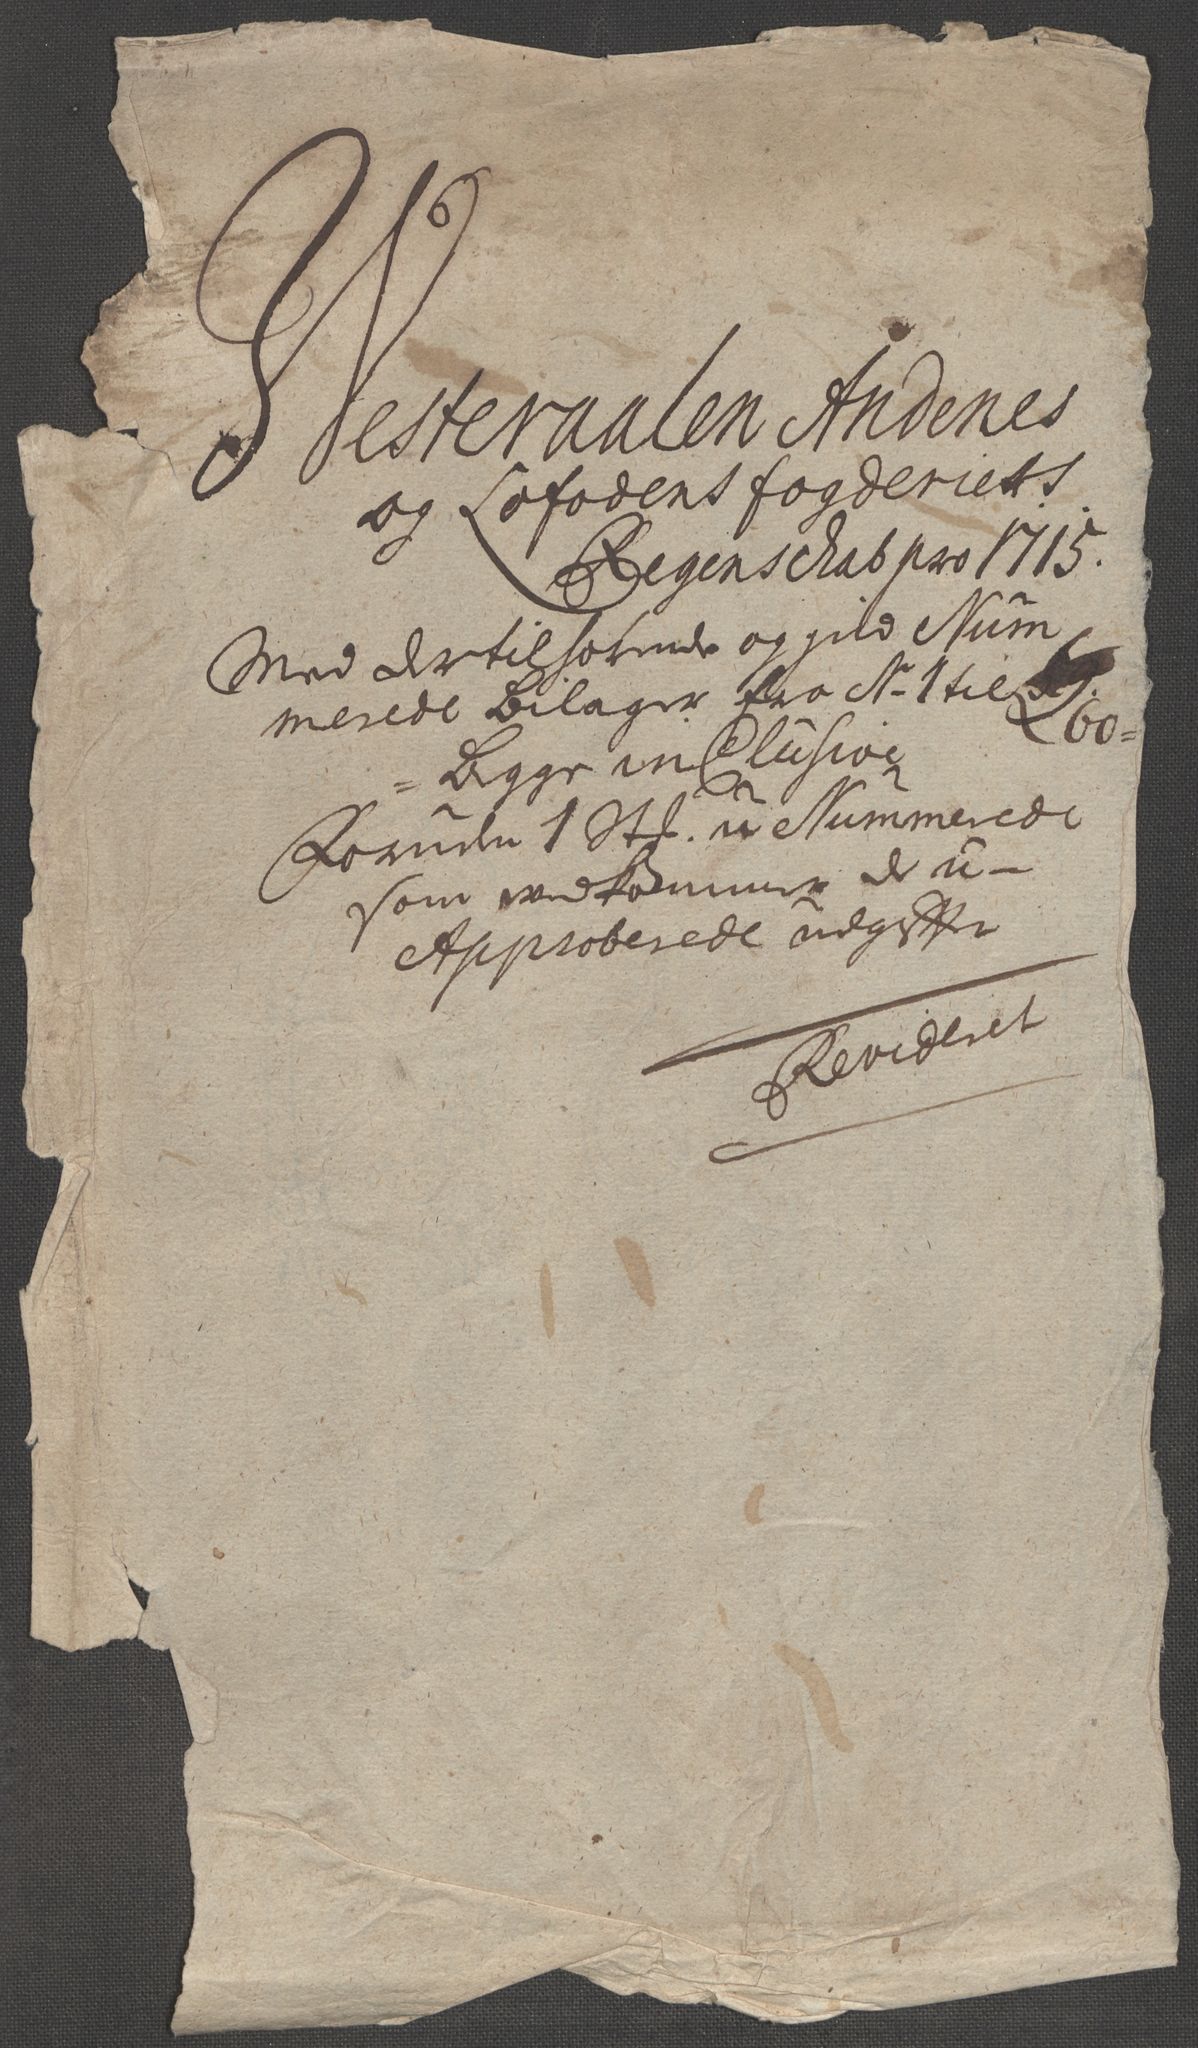 Westeraalen Andenes
og Lofodens fogderietts
Regenschab pro 1715.
Med dertilhørende og Num
merede Bilager fra No 1 til 60=
= begge inClusive
Foruden 1 St. u Nummerede
som vedkommer de u-
Approberede udgifter
Revideret